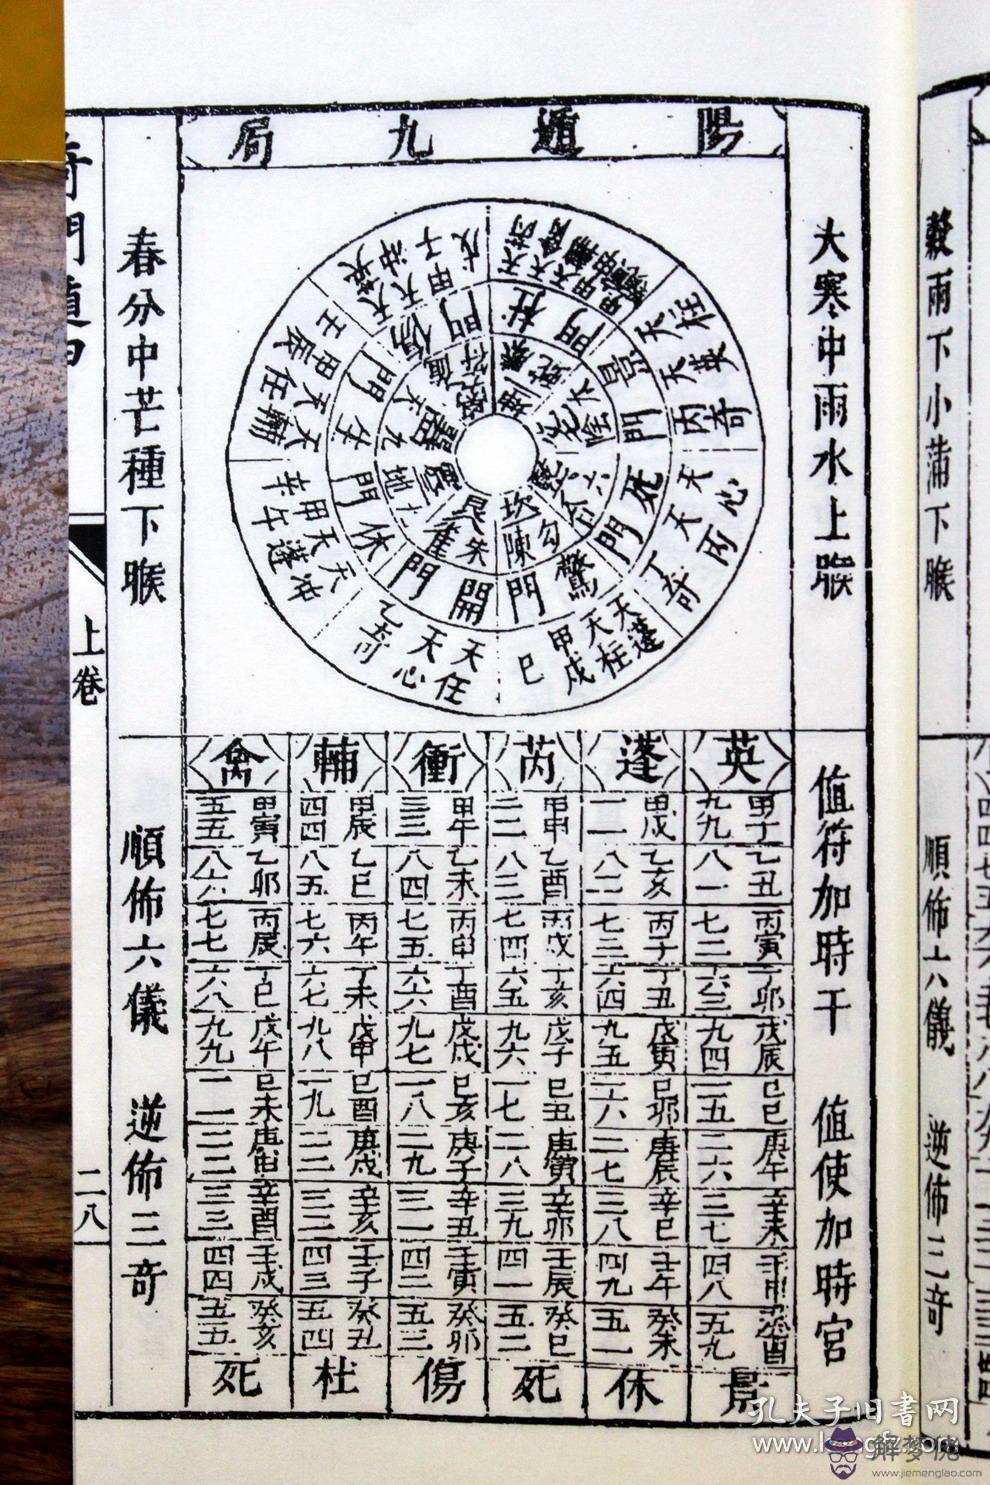 陽遁九局
大寒中雨水上𠊱
春分中芒種下𠊱
值符加時干 值使加時宮
順佈六儀 逆佈三奇
英 蓬 芮 衝 輔 禽
甲子 九九
乙丑 八一
丙寅 七二
丁卯 六三
戊辰 九四
己巳 一五
庚午 二六
辛未 三七
壬申 四八
癸酉 五九
景
甲戌 一一
乙亥 八二
丙子 七三
丁丑 六四
戊寅 九五
己卯 一六
庚辰 二七
辛巳 三八
壬午 四九
癸未 五一
休
甲申 二二
乙酉 八三
丙戌 七四
丁亥 六五
戊子 九六
己丑 一七
庚寅 二八
辛卯 三九
壬辰 四一
癸巳 五二
死
甲午 三三
乙未 八四
丙申 七五
丁酉 六六
戊戌 九七
己亥 一八
庚子 二九
辛丑 三一
壬寅 四二
癸卯 五三
傷
甲辰 四四
乙巳 八五
丙午 七六
丁未 六七
戊申 九八
己酉 一九
庚戌 二一
辛亥 三二
壬子 四三
癸丑 五四
杜
甲寅 五五
乙卯 八六
丙辰 七七
丁巳 六八
戊午 九九
己未 一一
庚申 二二
辛酉 三三
壬戌 四四
癸亥 五五
死
杜門
景門
死門
驚門
開門
休門
生門
傷門
天柱
天英
丙奇
天心
丁奇
天蓬
天柱
甲戌
己
天任
天心
乙奇
天沖
天蓬
甲午
辛
天輔
天任
甲辰
壬
天英
天沖
甲子
戊
勾陳
朱雀
坎
艮
上卷
二八
穀雨下小滿下𠊱
順佈六儀 逆佈三奇
孔夫子旧書网
解梦佬
www.jiemenglao.com